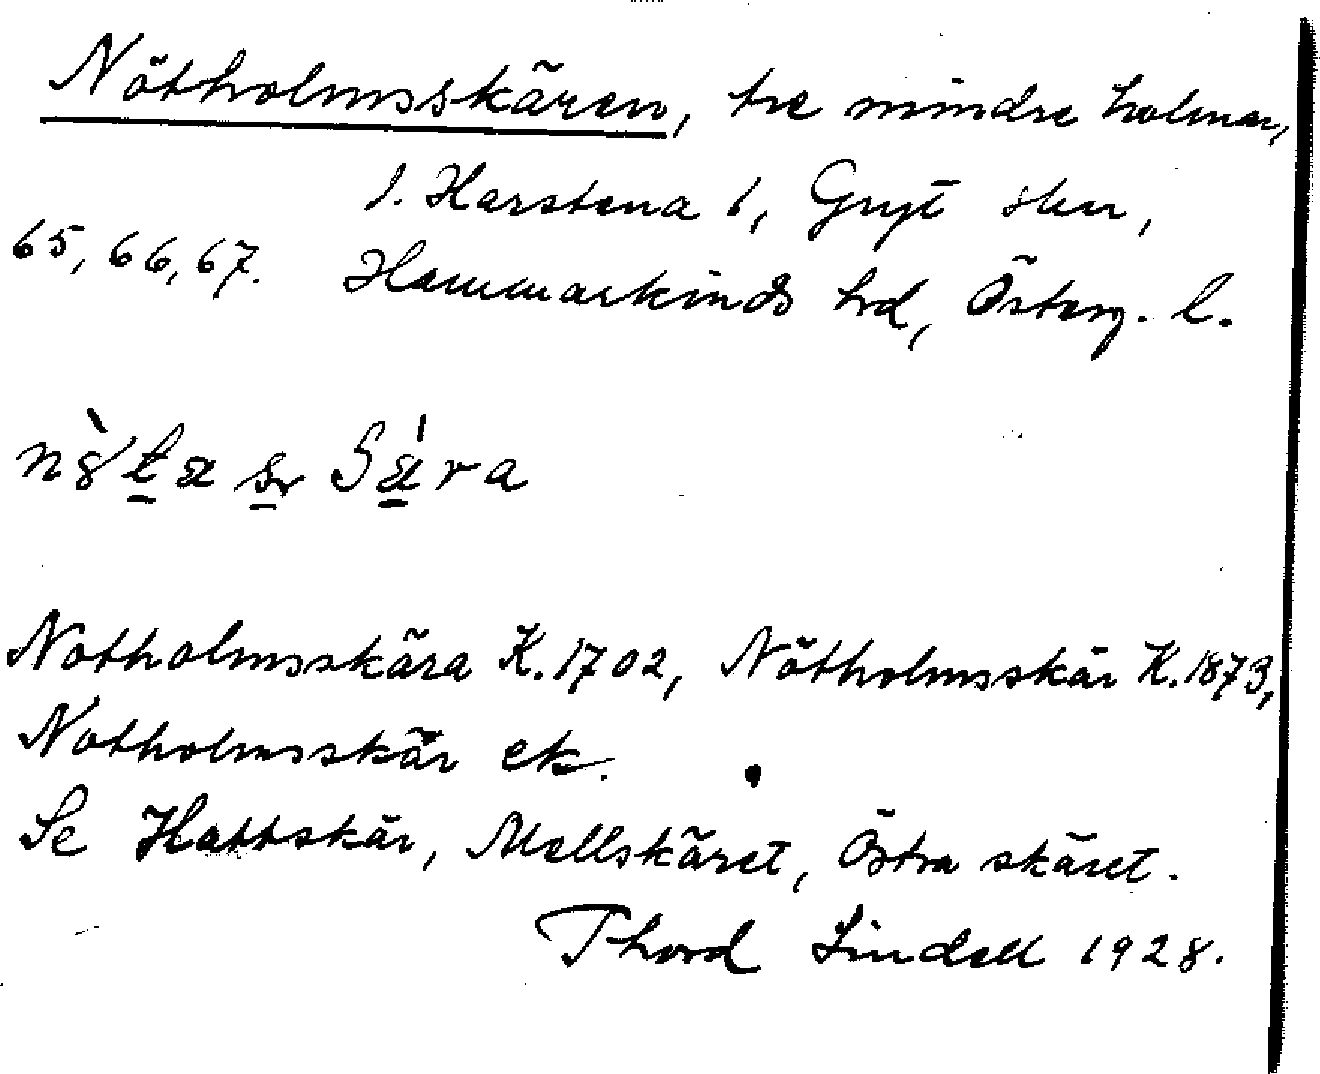 Nötholmsskären, tre mindre holmar,
l. Harstena 1, Gryt skn,
65, 66, 67. Hammarkinds hrd, Österg. l.
Notholmsskära K. 1702, Nötholmsskär K. 1873,
Notholmsskär ek.
Se Hattskär, Mellskäret, Östra skäret.
Thord Lindell 1928.